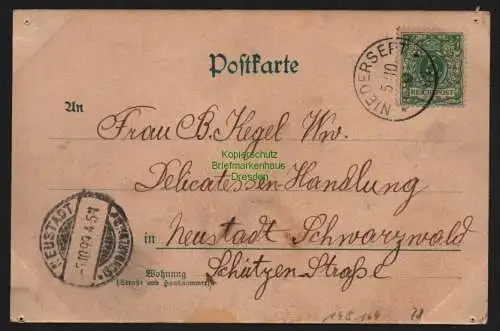 Postkarte
NIEDERSEPT
5 10
REICHSPOST
An
Frau B. Kegel Ww.
Kopierschutz
Briefmarkenhaus
Dresden
Delicatessen-Handlung
in Neustadt Schwarzwald
Schützen-Straße
NEUSTADT
SCHWARZWALD
5.10.99.4-5N
Wohnung
(Straße und Hausnummer)
148.164